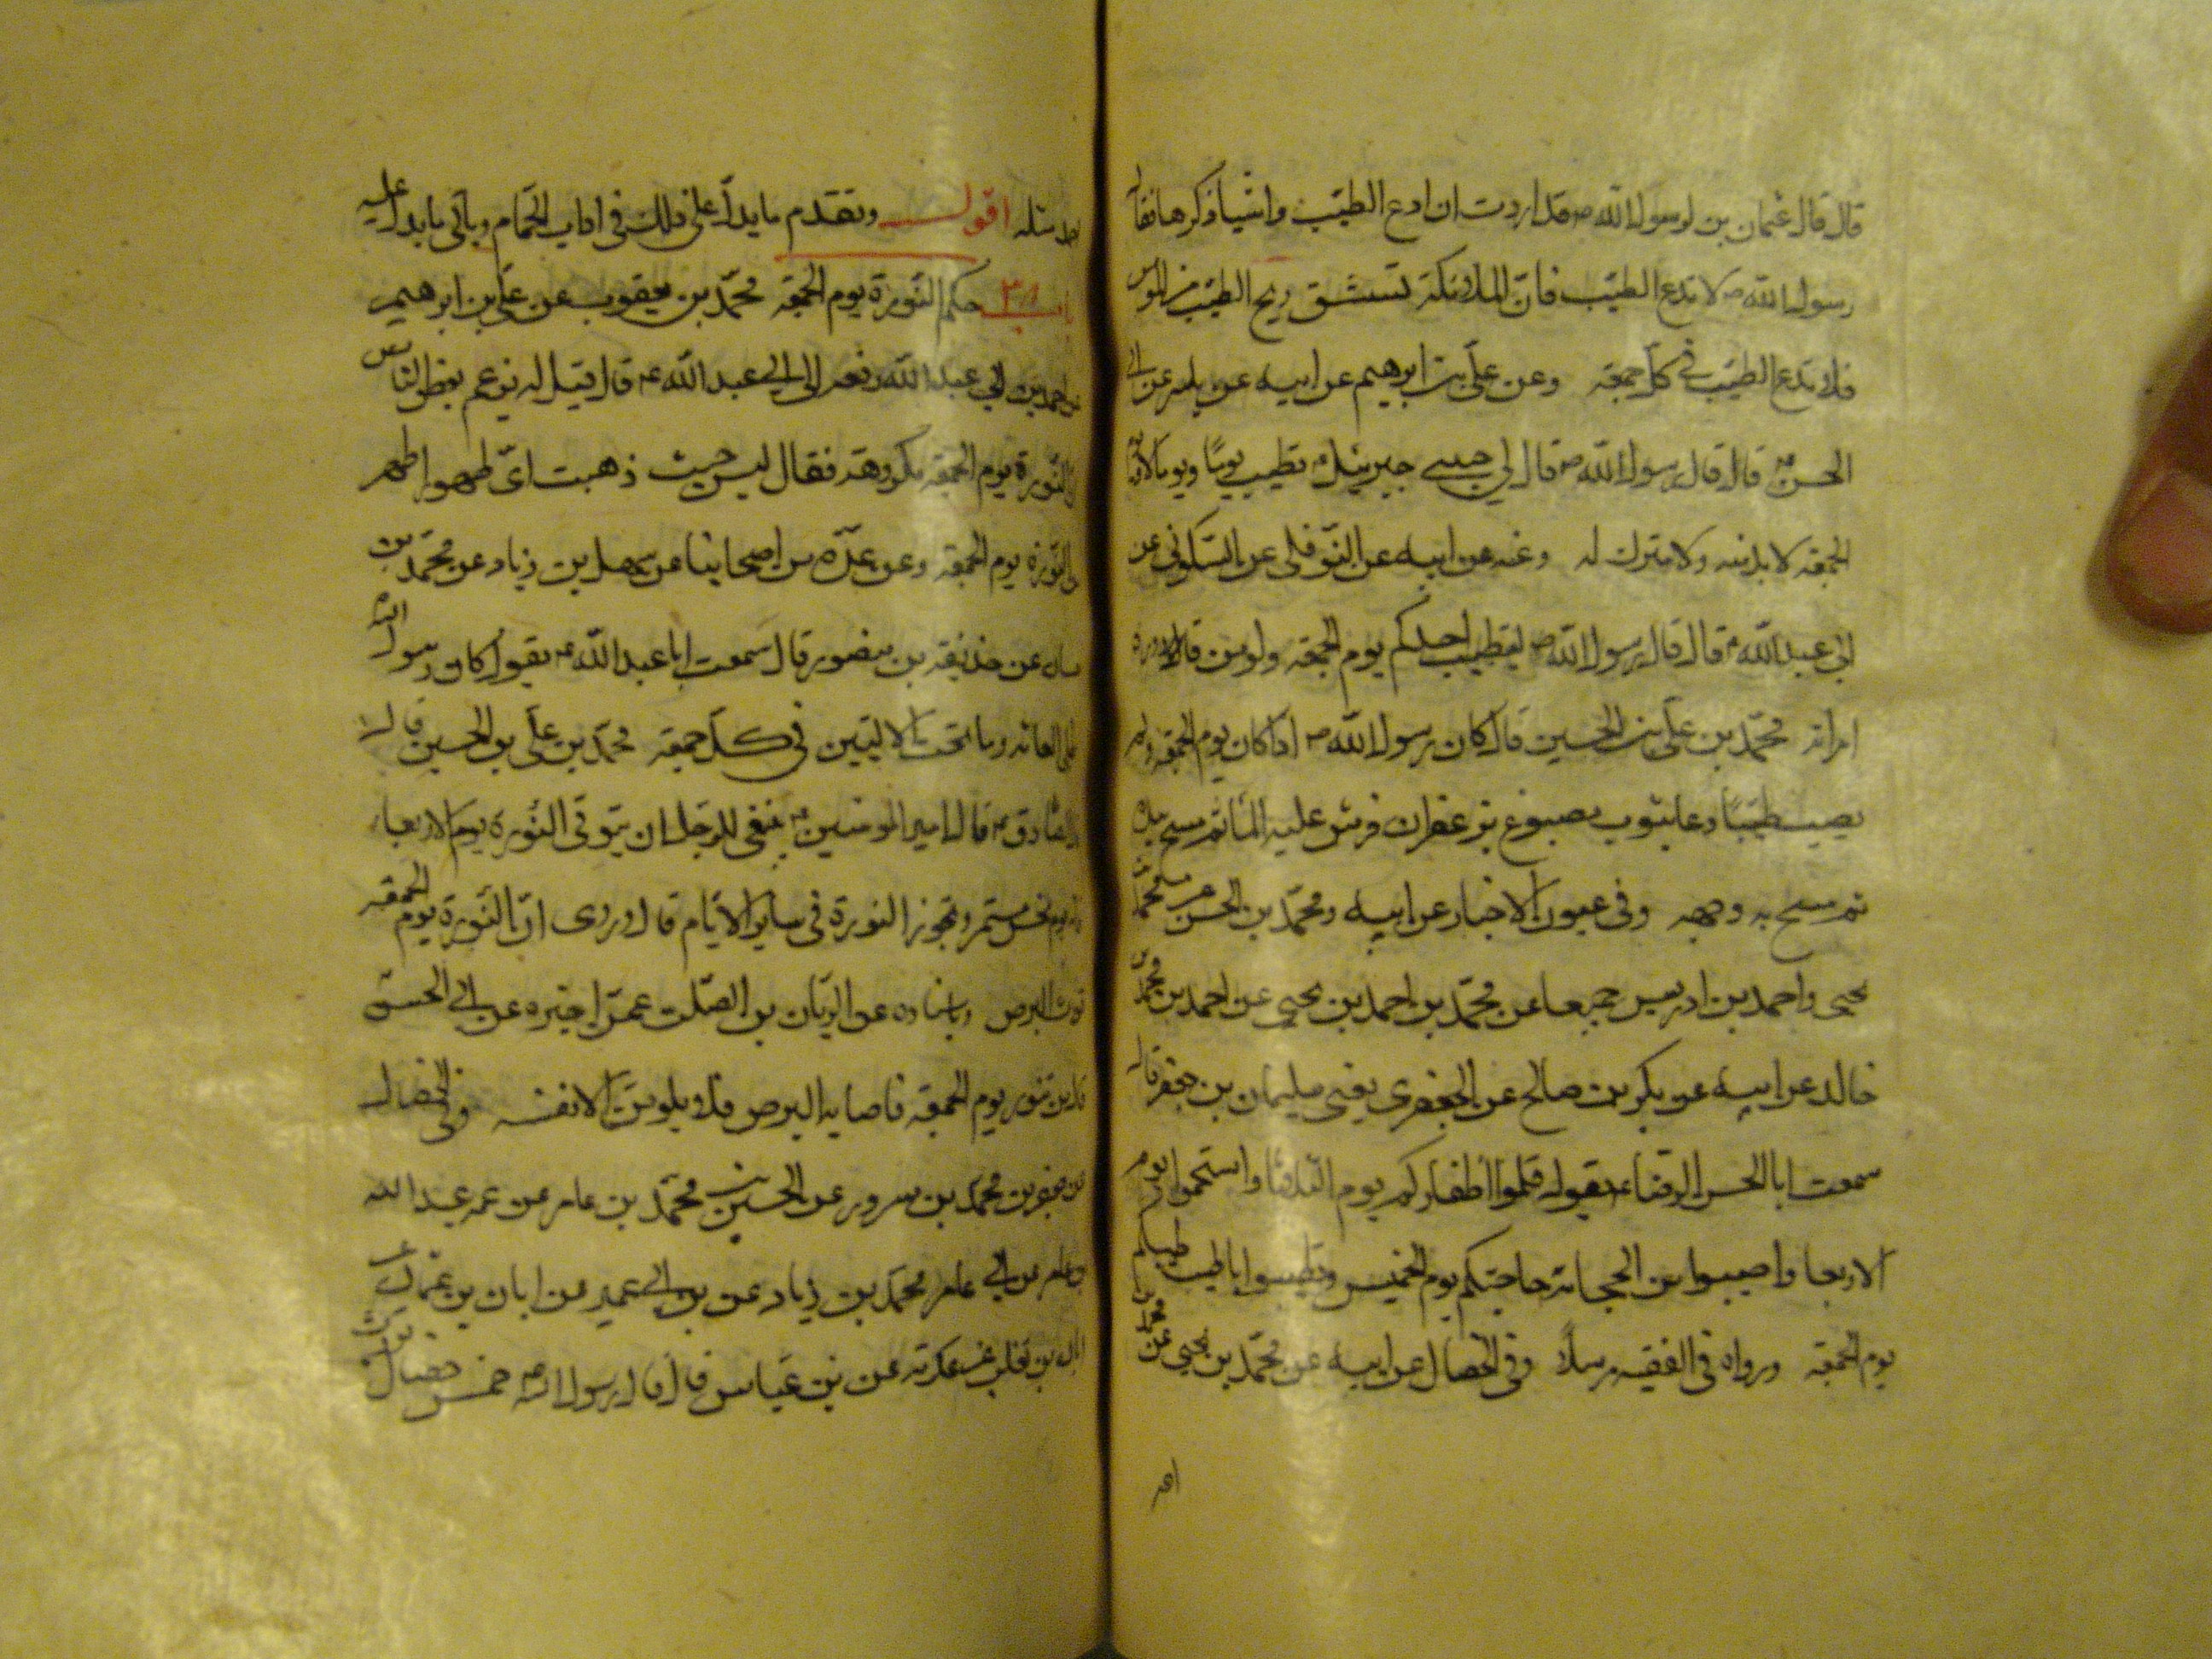 قال قال عثمان بن لرسول الله ص قد اردت ان ادع الطيب واشيا ذكرها فقال
رسول الله ص لا تدع الطيب فان الملائكة تستنشق ريح الطيب من المومن
فلا تدع الطيب في كل جمعة وعن علي بن ابرهيم عن ابيه عن ياسر عن ابي
الحسن ع قال قال رسول الله ص قال لي حبيبي جبرئيل ع تطيب يوما ويوما لا ويوم
الجمعة لا بد منه ولا مترك له وعنه عن ابيه عن النوفلي عن السكوني عن
ابي عبد الله ع قال قال رسول الله ص ليتطيب احدكم يوم الجمعة ولو من قارورة
امراته محمد بن علي بن الحسين قال كان رسول الله ص اذا كان يوم الجمعة ولم
يصب طيبا دعا بثوب مصبوغ بزعفران فرش عليه الماء ثم مسح بيده
ثم مسح به وجهه وفي عيون الاخبار عن ابيه ومحمد بن الحسن عن محمد بن
يحيى واحمد بن ادريس جميعا عن محمد بن احمد بن يحيى عن احمد بن محمد بن
خالد عن ابيه عن بكر بن صالح عن الجعفري يعني سليمان بن جعفر قال
سمعت ابا الحسن الرضا ع يقول قلموا أظفاركم يوم الثلاثا واستحموا يوم
الاربعا واصيبوا من الحجامة حاجتكم يوم الخميس وتطيبوا باطيب طيبكم
يوم الجمعة ورواه في الفقيه مرسلا وفي الخصال عن ابيه عن محمد بن يحيى عن محمد بن
احمد
احمد مثله اقول وتقدم ما يدل على ذلك في اداب الحمام وياتي ما يدل عليه
باب حكم النورة يوم الجمعة محمد بن يعقوب عن علي بن ابرهيم
عن احمد بن ابي عبد الله رفعه الى ابي عبد الله ع قال قيل له يزعم بعض الناس
ان النورة يوم الجمعة مكروهة فقال ليس حيث ذهبت اي طهور اطهر
من النورة يوم الجمعة وعن عدة من اصحابنا عن سهل بن زياد عن محمد بن
عن حذيفة بن منصور قال سمعت ابا عبد الله ع يقول كان رسول الله
العانة وما تحت الاليتين في كل جمعة محمد بن علي بن الحسين قال
الصادق ع قال امير المومنين ع ينبغي للرجل ان يتوقى النورة يوم الاربعا
فانه يوم نحس مستمر وتجوز النورة في ساير الايام قال وروى ان النورة يوم الجمعة
تورث البرص وباسناده عن الريان بن الصلت عمن اخبره عن ابي الحسن
قال من تنور يوم الجمعة فاصابه البرص فلا يلومن الا نفسه وفي الخصال
عن جعفر بن محمد بن مسرور عن الحسين بن محمد بن عامر عن عمه عبد الله
بن عامر عن ابي عامر محمد بن زياد عن بن ابي عمير عن ابان بن عثمان عن
ابان بن تغلب عن عكرمة عن بن عباس قال قال رسول الله ص خمس خصال تورث